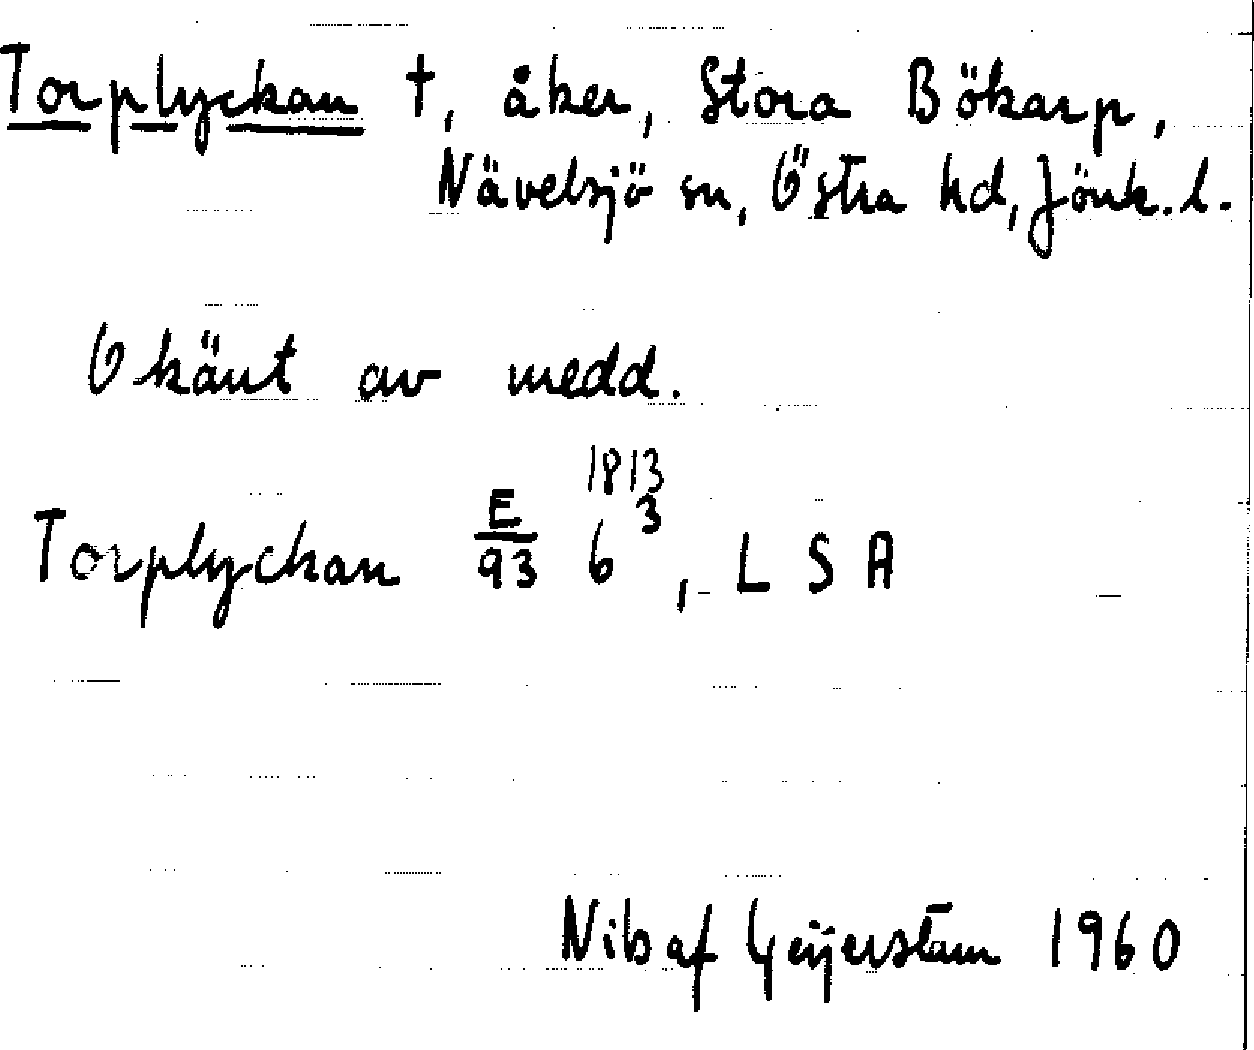 Torplyckan †, åker, Stora Bökarp,
Nävelsjö sn, Östra hd, Jönk. l.
Okänt av medd.
1813
Torplyckan E/93 6 3, L S A
Nils af Geijerstam 1960